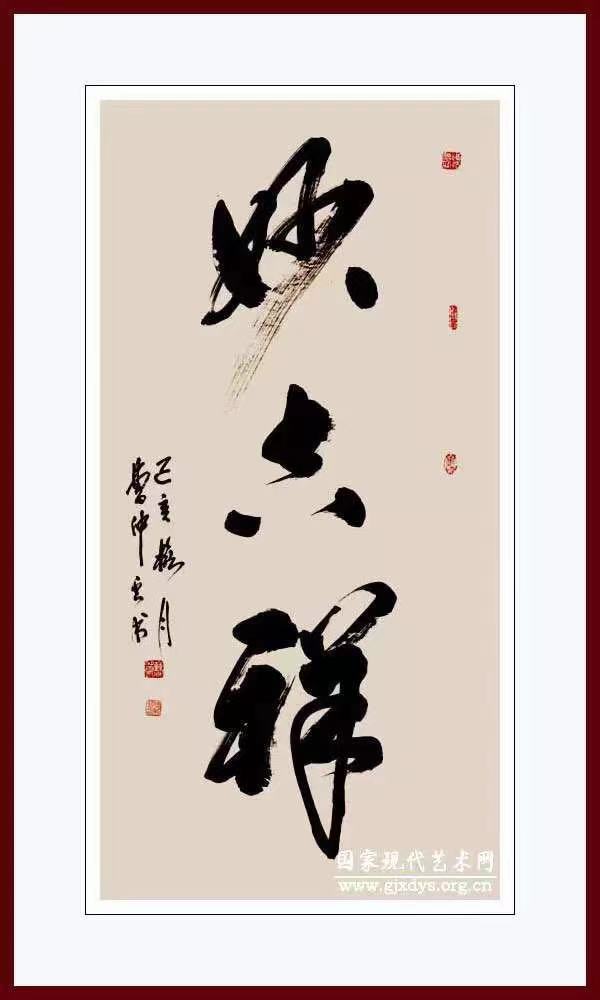 妙吉祥
己亥 月
仲 书
国家现代艺术网
www.gjxdys.org.cn